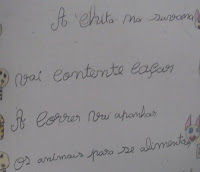 A Chita na savana
vai contente caçar
A correr vai apanhar
os animais para se alimentar